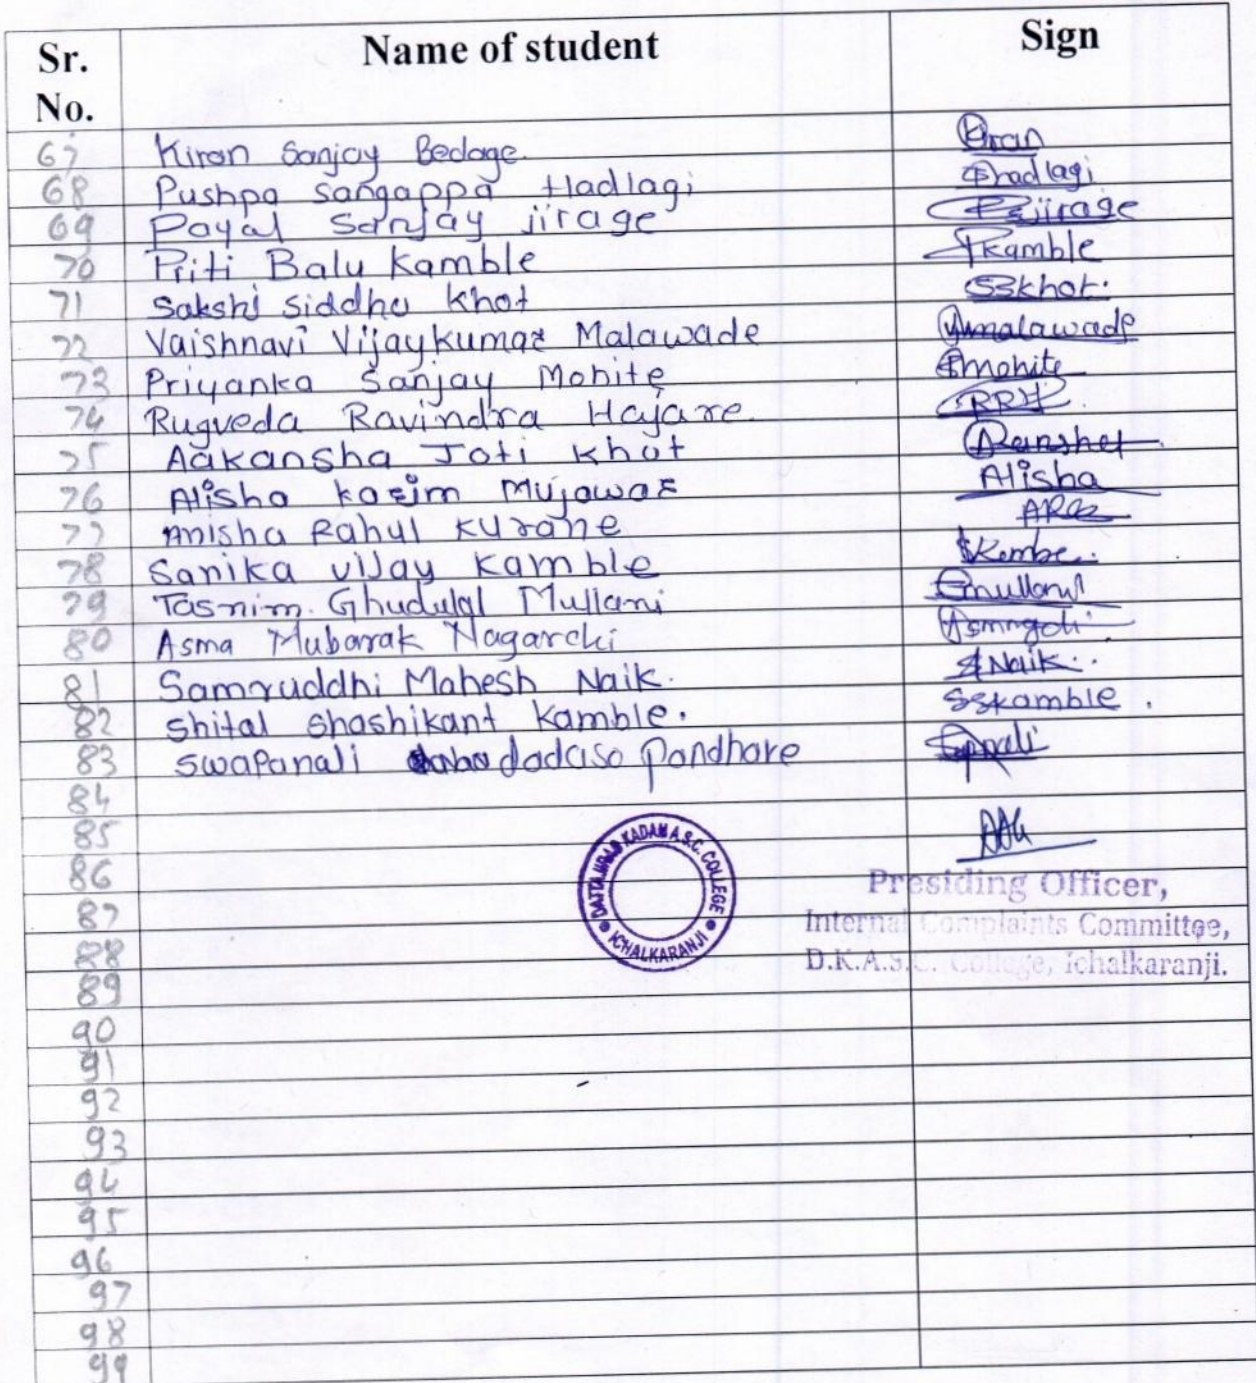 Sr. No. Name of student Sign
67 Kiran Sanjay Bedage. Kiran
68 Pushpa Sangappa Hadlagi Phadlagi
69 Payal Sanjay jirage PSjirage
70 Priti Balu Kamble PKamble
71 Sakshi Siddhu Khot SSkhot.
72 Vaishnavi Vijaykumar Malawade Vmalawade
73 Priyanka Sanjay Mohite Pmohite
74 Rugveda Ravindra Hajare. RRH
75 Aakansha Joti Khot
76 Alisha kasim Mujawar Alisha
77 Anisha Rahul Kurane
78 Sanika vijay Kamble
79 Tasnim. Ghudulal Mullani
80 Asma Mubarak Nagarchi
81 Samruddhi Mahesh Naik. SNaik..
82 Shital Shashikant Kamble. SSkamble.
83 Swapanali dadaso Pandhare
84
85
86
DATTAJIRAO KADAM A.S.C. COLLEGE
ICHALKARANJI
Presiding Officer,
87
Internal Complaints Committee,
88
D.K.A.S.C. College, Ichalkaranji.
89
90
91
92
93
94
95
96
97
98
99